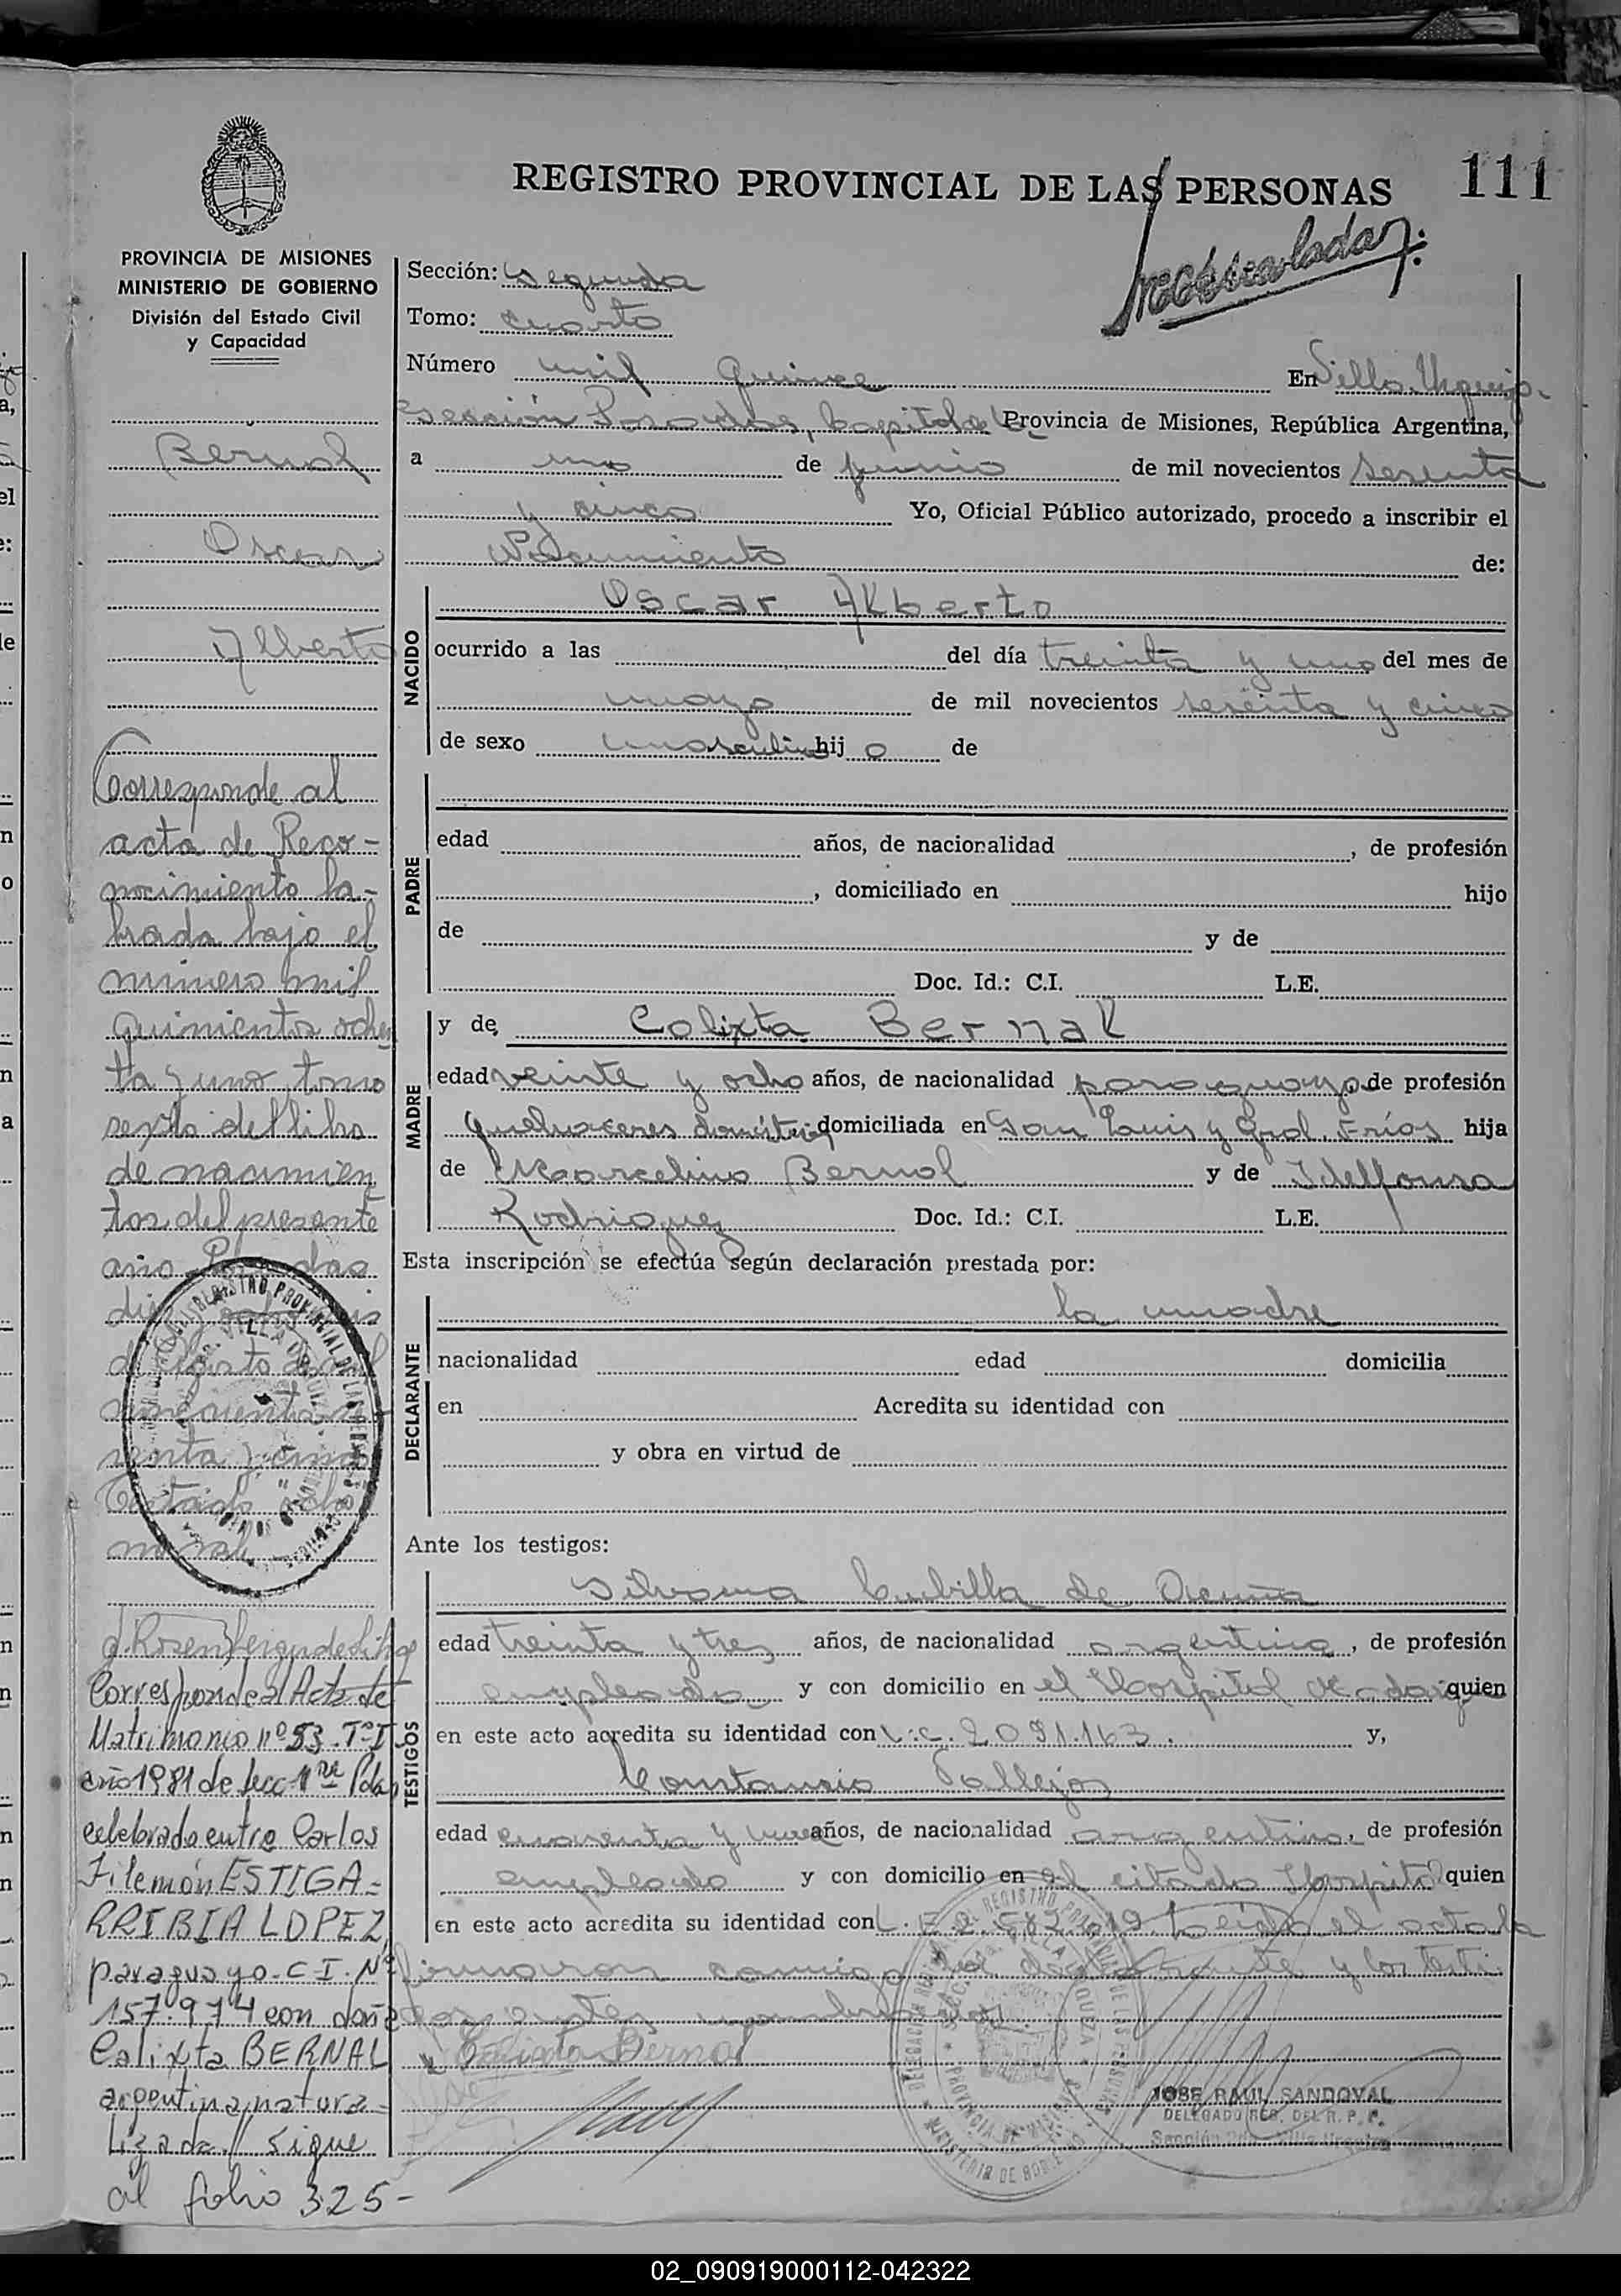 REGISTRO PROVINCIAL DE LAS PERSONAS
111
PROVINCIA DE MISIONES
MINISTERIO DE GOBIERNO
División del Estado Civil
y Capacidad
Sección: Segunda
Tomo: cuarto
Número mil quince En Villa Urquiza
Sección Posadas, Capital de la Provincia de Misiones, República Argentina,
a uno de junio de mil novecientos sesenta
y cinco Yo, Oficial Público autorizado, procedo a inscribir el
Nacimiento de:
NACIDO
Oscar Alberto
ocurrido a las del día treinta y uno del mes de
mayo de mil novecientos sesenta y cinco
de sexo masculino hijo de
PADRE
edad años, de nacionalidad , de profesión
, domiciliado en hijo
de y de
Doc. Id.: C.I. L.E.
MADRE
y de, Calixta Bernal
edad veinte y ocho años, de nacionalidad paraguaya de profesión
quehaceres domésticos domiciliada en San Luis y Gral. Frías hija
de Marcelino Bernal y de Idelfonsa
Rodriguez Doc. Id.: C.I. L.E.
Esta inscripción se efectúa según declaración prestada por:
DECLARANTE
la madre
nacionalidad edad domicilia
en Acredita su identidad con
y obra en virtud de
Ante los testigos:
TESTIGOS
Silvana Cubilla de Acuña
edad treinta y tres años, de nacionalidad argentina, de profesión
empleada y con domicilio en el Hospital quien
en este acto acredita su identidad con L.C. 2.091.163. y,
Constancio Vallejos
edad cuarenta y nueve años, de nacionalidad argentino, de profesión
empleado y con domicilio en el citado Hospital quien
en este acto acredita su identidad con L.E. Leida el acta la
firmaron conmigo la declarante y los testi
gos antes nombrados.
Calixta Bernal
JOSE RAUL SANDOVAL
DELEGADO REG. DEL R. P. P.
Bernal
Oscar
Alberto
Corresponde al
acta de Reco-
nocimiento la-
brada bajo el
número mil
quinientos ochen
ta y uno, tomo
sexto del libro
de nacimien
tos del presente
año Posadas
de Agosto de mil
novecientos se
senta y cinco
Corresponde al Acta de
Matrimonio nº 53. Tº I
año 1981 de Secc. 1ra Pdas
celebrada entre Carlos
Filemón ESTIGA-
RRIBIA LOPEZ,
paraguayo-C-I-Nº
157.974 con doña
Calixta BERNAL
argentina, natura-
lizada.// Sigue
al folio 325-
02_090919000112-042322